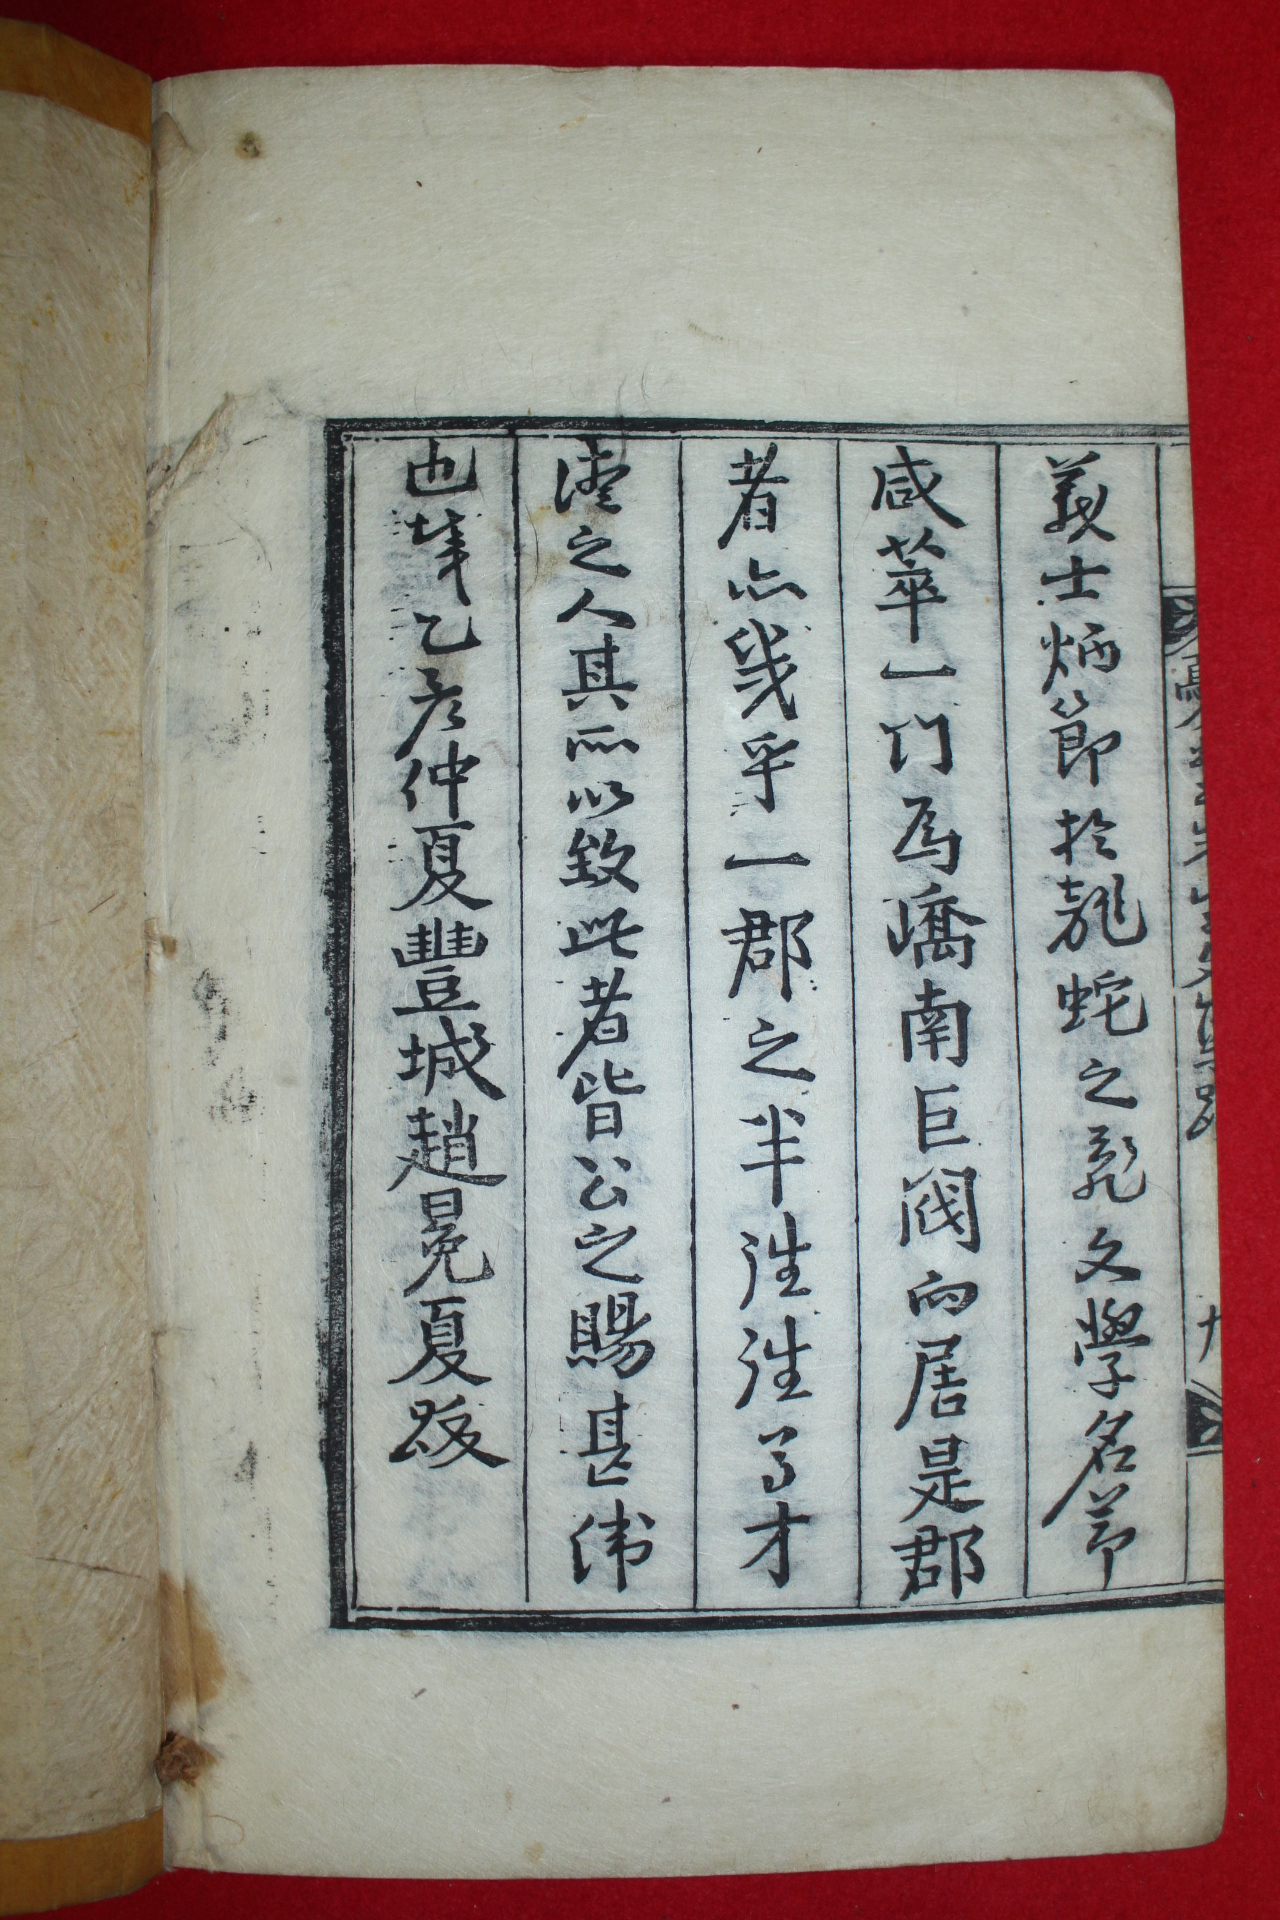 義士炳節於龍蛇之亂文學名節
咸萃一門爲嶠南巨閥向居是郡
者亦幾乎一郡之半往往多才
之人其所以致此者皆公之賜甚偉
也歲乙亥仲夏豐城趙冕夏跋